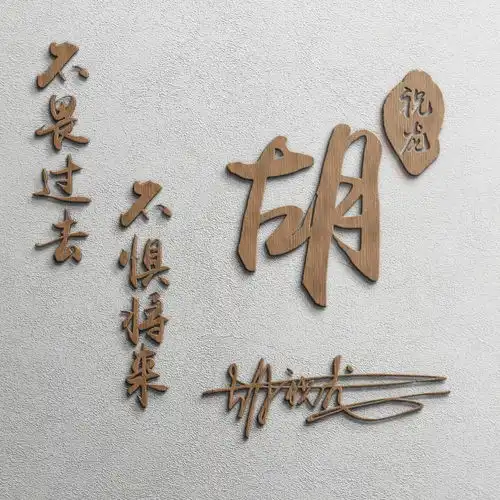 不畏过去
不惧将来
胡
祝龙
胡祝龙